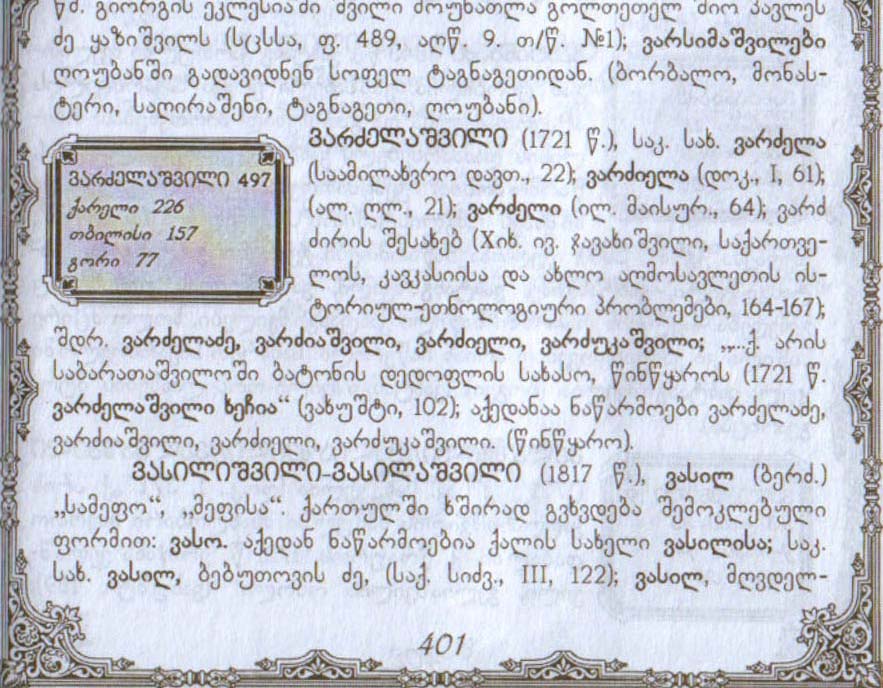 წმ. გიორგის ეკლესიაში შვილი მოუნათლა გოლთეთელ შიო პავლეს
ძე ყაზიშვილს (სცსსა, ფ. 489, აღწ. 9. თ/წ. №1); ვარსიმაშვილები
ღოუბანში გადავიდნენ სოფელ ტაგნაგეთიდან. (ბორბალო, მონას-
ტერი, საღირაშენი, ტაგნაგეთი, ღოუბანი).
ვარძელაშვილი (1721 წ.), საკ. სახ. ვარძელა
(საამილახვრო დავთ., 22); ვარძიელა (დოკ., I, 61);
(ალ. ღლ., 21); ვარძელი (ილ. მაისურ., 64); ვარძ
ძირის შესახებ (Xიხ. ივ. ჯავახიშვილი, საქართვე-
ლოს, კავკასიისა და ახლო აღმოსავლეთის ის-
ტორიულ-ეთნოლოგიური პრობლემები, 164-167);
ვარძელაშვილი 497
ქარელი 226
თბილისი 157
გორი 77
შდრ. ვარძელაძე, ვარძიაშვილი, ვარძიელი, ვარძუკაშვილი; „...ქ. არის
საბარათაშვილოში ბატონის დედოფლის სახასო, წინწყაროს (1721 წ.
ვარძელაშვილი ხეჩია“ (ვახუშტი, 102); აქედანაა ნაწარმოები ვარძელაძე,
ვარძიაშვილი, ვარძიელი, ვარძუკაშვილი. (წინწყარო).
ვასილიშვილი-ვასილაშვილი (1817 წ.), ვასილ (ბერძ.)
„სამეფო“, „მეფისა“. ქართულში ხშირად გვხვდება შემოკლებული
ფორმით: ვასო. აქედან ნაწარმოებია ქალის სახელი ვასილისა; საკ.
სახ. ვასილ, ბებუთოვის ძე, (საქ. სიძვ., III, 122); ვასილ, მღვდელ-
401